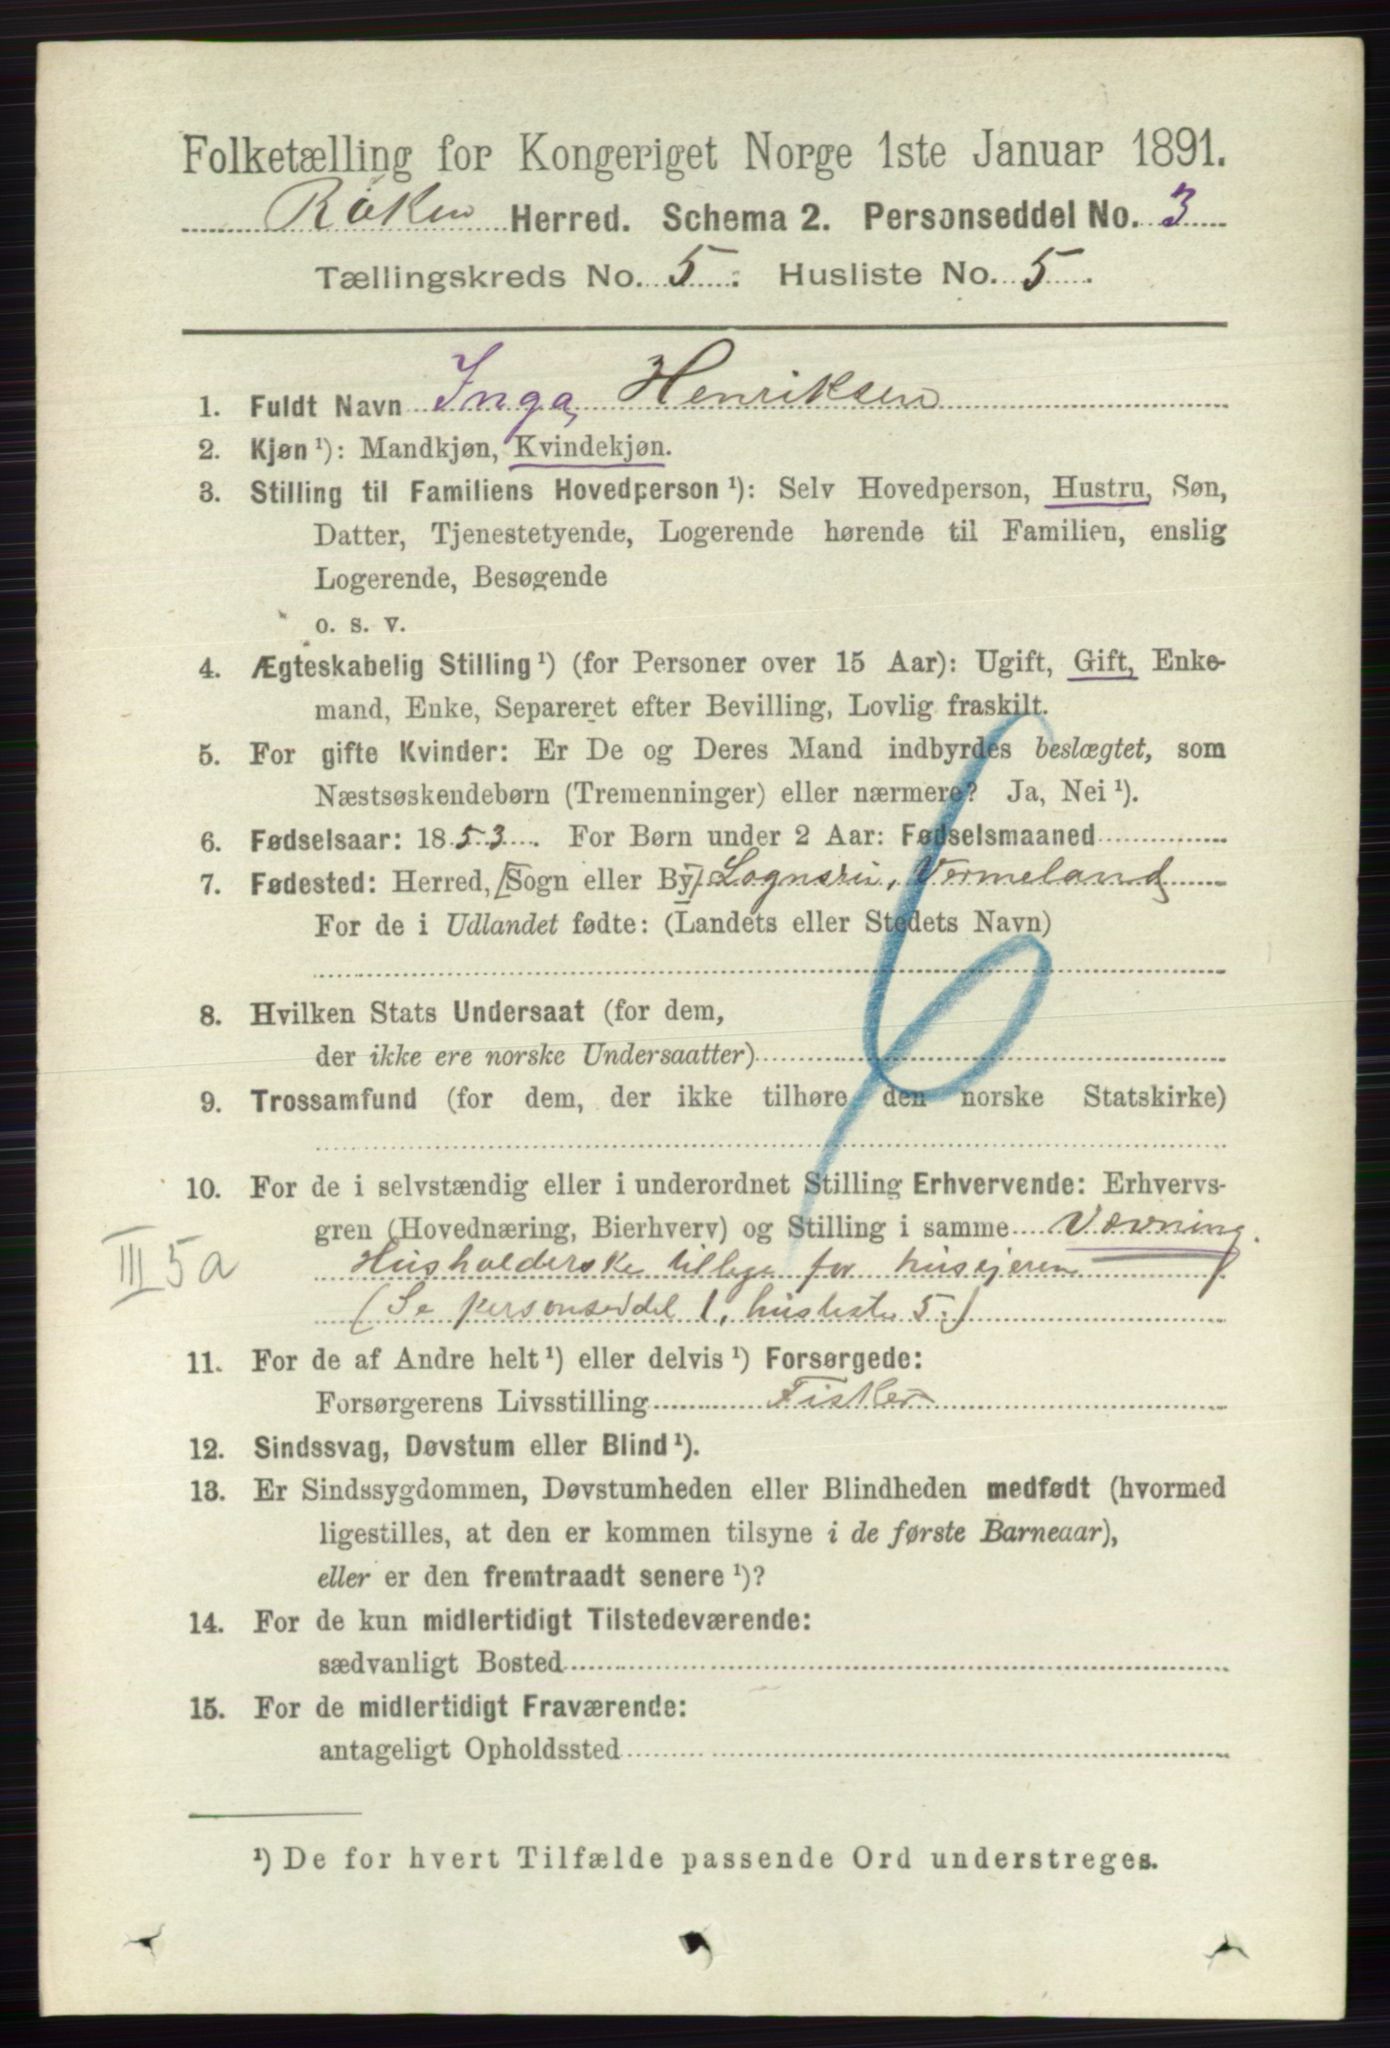 Folketælling for Kongeriget Norge 1ste Januar 1891.
Röken Herred. Schema 2. Personseddel No. 3
Tællingskreds No. 5. Husliste No. 5.
1. Fuldt Navn Inga Henriksen
2. Kjøn ¹): Mandkjøn, Kvindekjøn.
3. Stilling til Familiens Hovedperson ¹): Selv Hovedperson, Hustru, Søn,
Datter, Tjenestetyende, Logerende hørende til Familien, enslig
Logerende, Besøgende
o. s. v.
4. Ægteskabelig Stilling ¹) (for Personer over 15 Aar): Ugift, Gift, Enke-
mand, Enke, Separeret efter Bevilling, Lovlig fraskilt.
5. For gifte Kvinder: Er De og Deres Mand indbyrdes beslægtet, som
Næstsøskendebørn (Tremenninger) eller nærmere? Ja, Nei ¹).
6. Fødselsaar: 1853. For Børn under 2 Aar: Fødselsmaaned
7. Fødested: Herred, [Sogn eller By] Vermeland
For de i Udlandet fødte: (Landets eller Stedets Navn)
8. Hvilken Stats Undersaat (for dem,
der ikke ere norske Undersaatter)
9. Trossamfund (for dem, der ikke tilhøre den norske Statskirke)
10. For de i selvstændig eller i underordnet Stilling Erhvervende: Erhvervs-
gren (Hovednæring, Bierhverv) og Stilling i samme Vævning.
III 5a
Husholderske tillige for husejeren
(Se personseddel 1, husliste 5.)
11. For de af Andre helt ¹) eller delvis ¹) Forsørgede:
Forsørgerens Livsstilling Fisker
12. Sindssvag, Døvstum eller Blind ¹).
13. Er Sindssygdommen, Døvstumheden eller Blindheden medfødt (hvormed
ligestilles, at den er kommen tilsyne i de første Barneaar),
eller er den fremtraadt senere ¹)?
14. For de kun midlertidigt Tilstedeværende:
sædvanligt Bosted
15. For de midlertidigt Fraværende:
antageligt Opholdssted
¹) De for hvert Tilfælde passende Ord understreges.